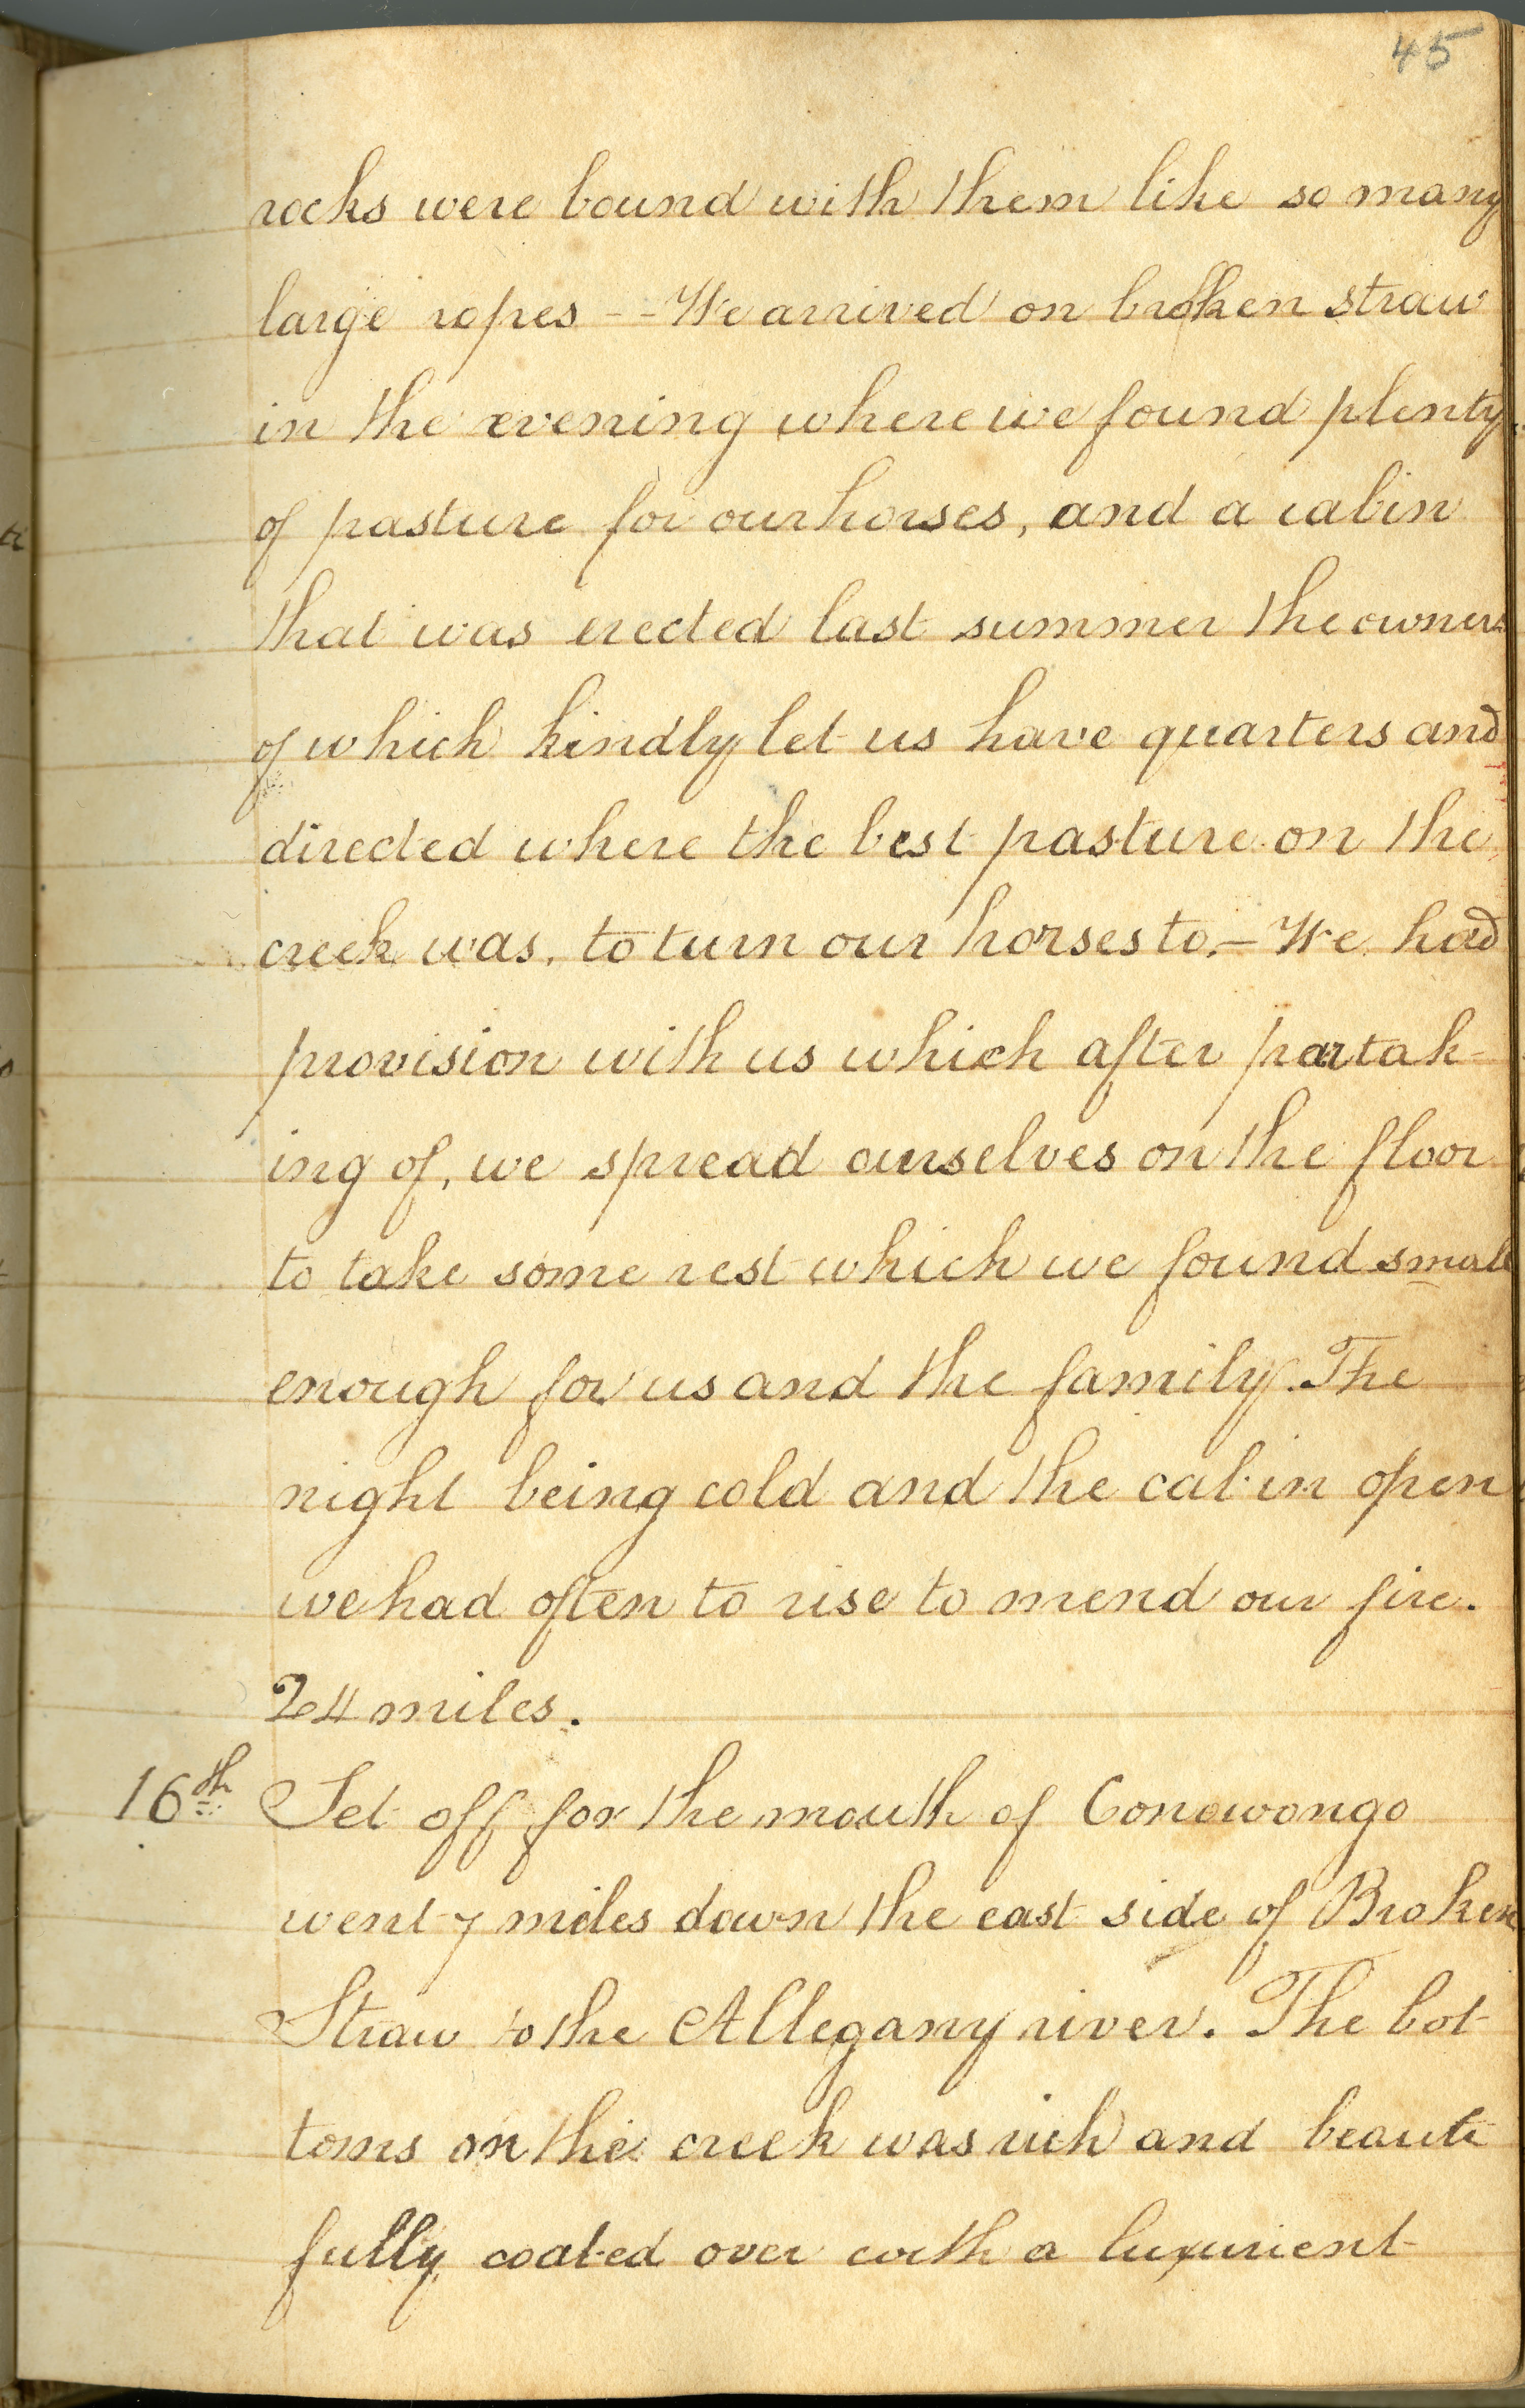 45
rocks were bound with them like so many
large ropes -- We arrived on broken straw
in the evening where we found plenty
of pasture for our horses, and a cabin
that was erected last summer the owners
of which kindly let us have quarters and
directed where the best pasture on the
creek was, to turn our horses to. - We had
provision with us which after partak-
ing of, we spread ourselves on the floor
to take some rest which we found small
enough for us and the family. The
night being cold and the cabin open
we had often to rise to mend our fire.
24 miles.
16th Set off for the mouth of Conowongo
went 7 miles down the east side of Broken
Straw to the Allegany river. The bot-
toms on the creek was rich and beauti
fully coated over with a luxurient